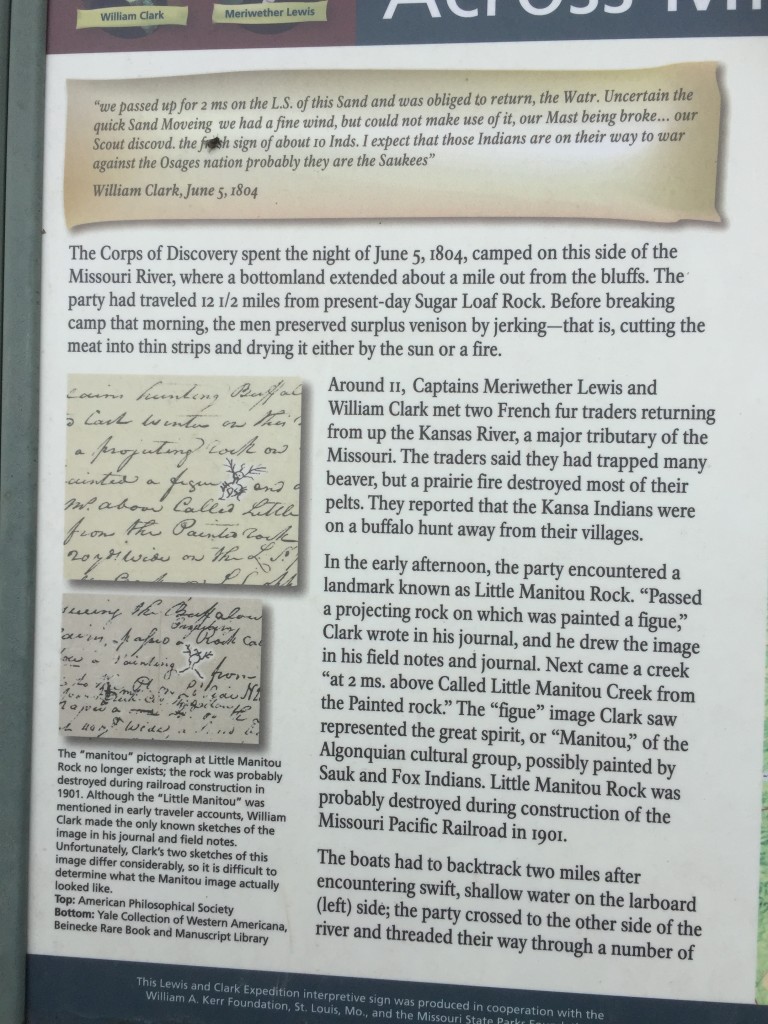 William Clark
Meriwether Lewis
Across
"we passed up for 2 ms on the L.S. of this Sand and was obliged to return, the Watr. Uncertain the
quick Sand Moveing we had a fine wind, but could not make use of it, our Mast being broke... our
Scout discovd. the sign of about 10 Inds. I expect that those Indians are on their way to war
against the Osages nation probably they are the Saukees"
William Clark, June 5, 1804
The Corps of Discovery spent the night of June 5, 1804, camped on this side of the
Missouri River, where a bottomland extended about a mile out from the bluffs. The
party had traveled 12 1/2 miles from present-day Sugar Loaf Rock. Before breaking
camp that morning, the men preserved surplus venison by jerking—that is, cutting the
meat into thin strips and drying it either by the sun or a fire.
Around 11, Captains Meriwether Lewis and
William Clark met two French fur traders returning
from up the Kansas River, a major tributary of the
Missouri. The traders said they had trapped many
beaver, but a prairie fire destroyed most of their
pelts. They reported that the Kansa Indians were
on a buffalo hunt away from their villages.
In the early afternoon, the party encountered a
landmark known as Little Manitou Rock. "Passed
a projecting rock on which was painted a figue,"
Clark wrote in his journal, and he drew the image
in his field notes and journal. Next came a creek
"at 2 ms. above Called Little Manitou Creek from
the Painted rock." The "figue" image Clark saw
represented the great spirit, or "Manitou," of the
Algonquian cultural group, possibly painted by
Sauk and Fox Indians. Little Manitou Rock was
probably destroyed during construction of the
Missouri Pacific Railroad in 1901.
The boats had to backtrack two miles after
encountering swift, shallow water on the larboard
(left) side; the party crossed to the other side of the
river and threaded their way through a number of
hunting Buffal
a projecting rock on
a figue and
above Called Little
from the Painted rock
wide on the L.S.
the Buffalow
a Rock
a Painting from
The "manitou" pictograph at Little Manitou
Rock no longer exists; the rock was probably
destroyed during railroad construction in
1901. Although the "Little Manitou" was
mentioned in early traveler accounts, William
Clark made the only known sketches of the
image in his journal and field notes.
Unfortunately, Clark's two sketches of this
image differ considerably, so it is difficult to
determine what the Manitou image actually
looked like.
Top: American Philosophical Society
Bottom: Yale Collection of Western Americana,
Beinecke Rare Book and Manuscript Library
This Lewis and Clark Expedition interpretive sign was produced in cooperation with the
William A. Kerr Foundation, St. Louis, Mo., and the Missouri State Parks